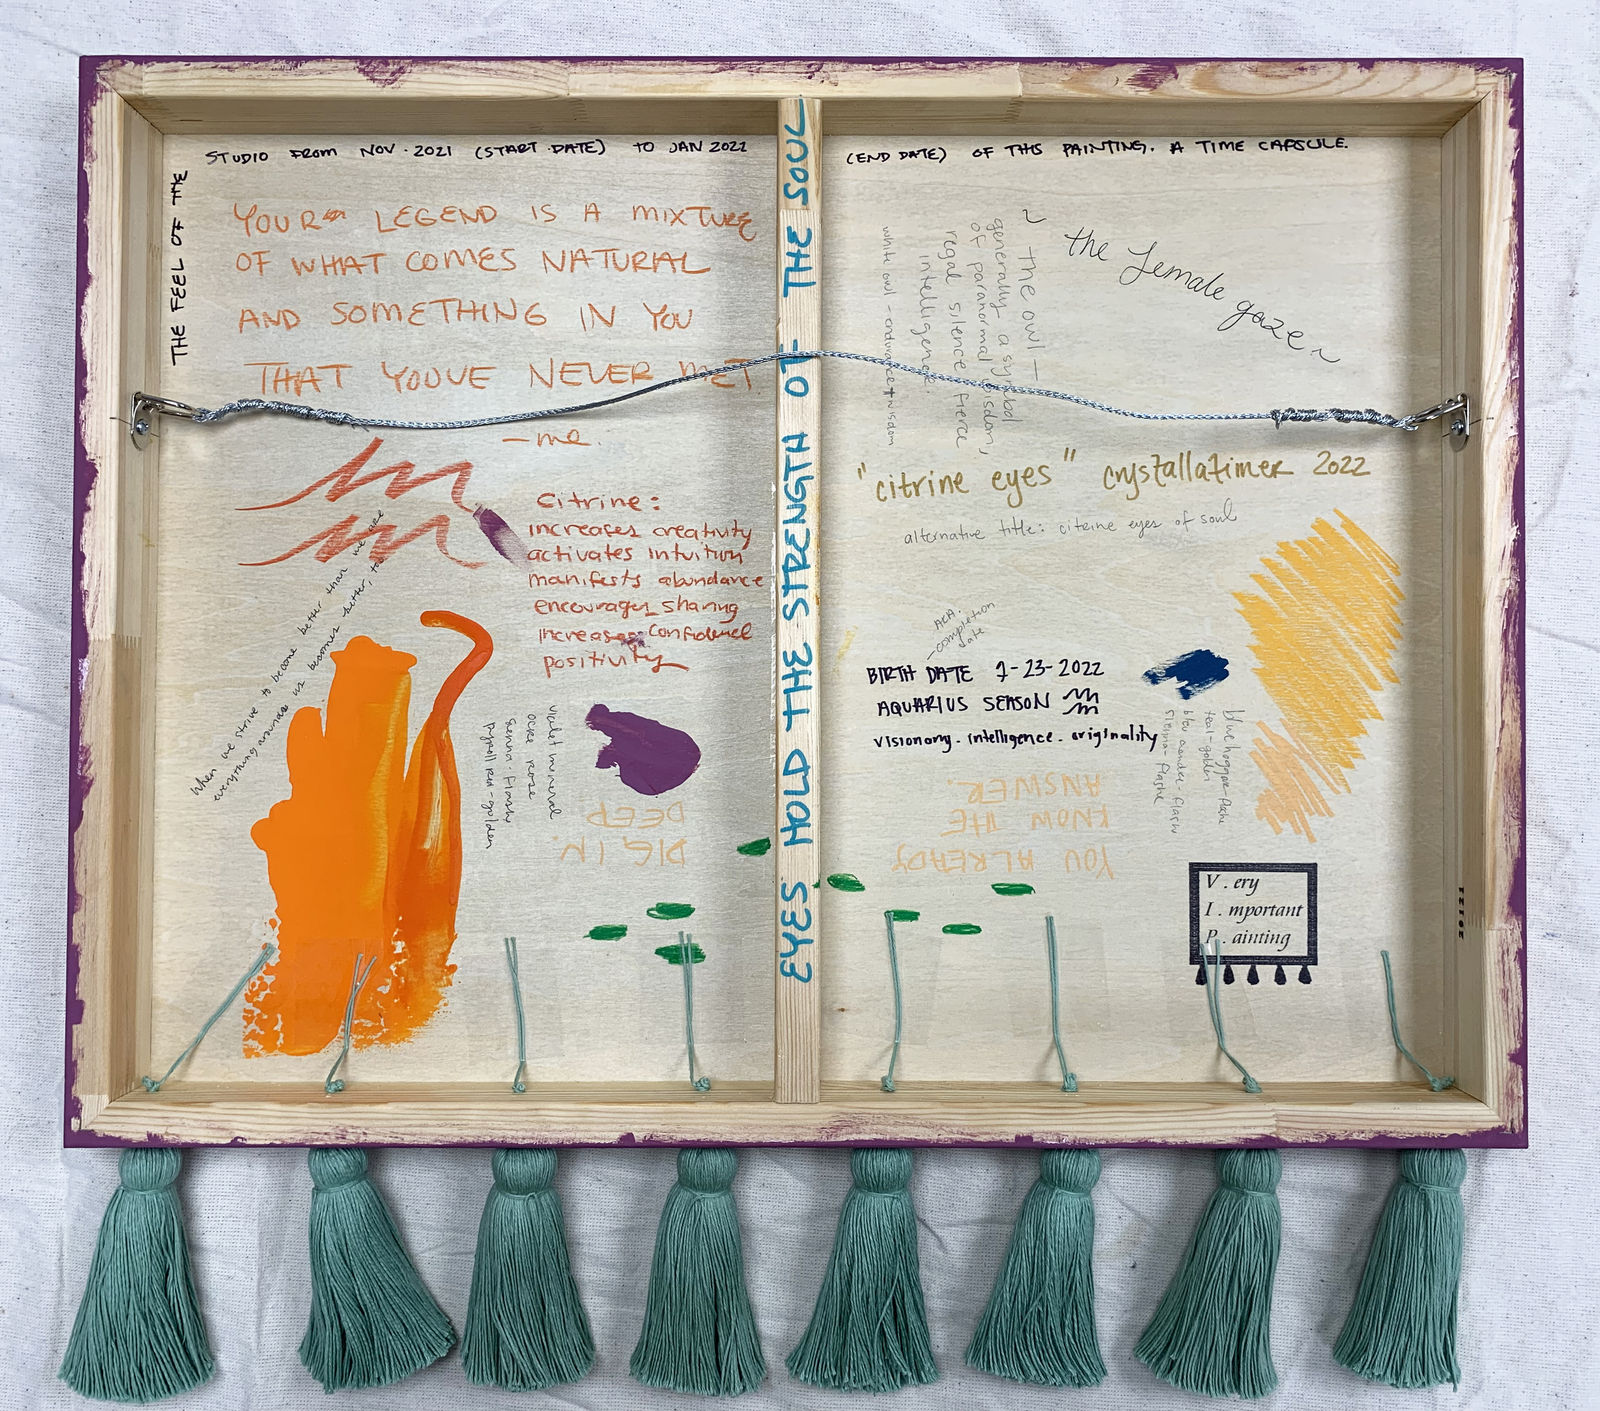 THE FEEL OF THE
STUDIO FROM NOV. 2021 (START DATE) TO JAN 2022
(END DATE) OF THIS PAINTING. A TIME CAPSULE.
YOUR LEGEND IS A MIXTURE
OF WHAT COMES NATURAL
AND SOMETHING IN YOU
THAT YOUVE NEVER MET
- me.
citrine:
increases creativity
activates intuition
manifests abundance
encourages sharing
increases confidence
positivity
when we strive to become better than we are
everything around us becomes better, too
violet mineral
ocre rose
sienna - flashe
pyroll red - golden
DIG IN
DEEP
EYES HOLD THE STRENGTH OF THE SOUL
~ the female gaze ~
~ the owl -
generally a symbol
of paranormal wisdom,
regal silence fierce
intelligence.
white owl - endurance + wisdom
"citrine eyes" crystallatimer 2022
alternative title: citrine eyes of soul
AKA.
- completion
date
BIRTH DATE 1-23-2022
AQUARIUS SEASON
visionary. intelligence. originality
blue hoggar - flashe
teal - golden
bleu - flashe
sienna - flashe
YOU ALREADY
KNOW THE
ANSWER
V. ery
I. mportant
P. ainting